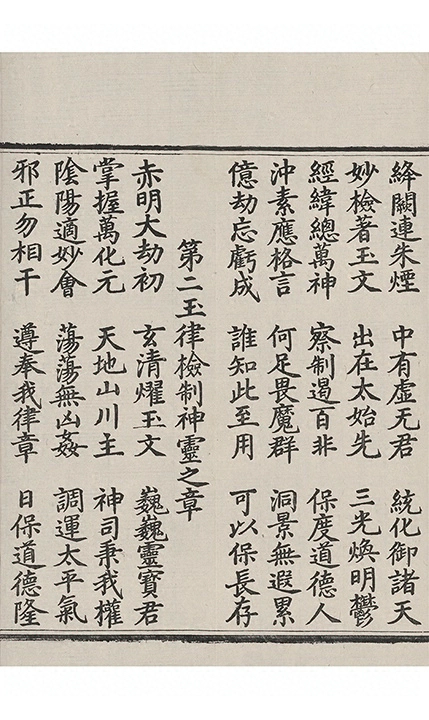 絳闕連朱煙 中有虛无君 統化御諸天
妙檢著玉文 出在太始先 三光煥明鬱
經緯總萬神 察制遏百非 保度道德人
沖素應格言 何足畏魔群 洞景無遐累
億劫忘虧成 誰知此至用 可以保長存
第二玉律檢制神靈之章
赤明大劫初 玄清燿玉文 巍巍靈寶君
掌握萬化元 天地山川主 神司秉我權
陰陽適妙會 蕩蕩無凶姦 調運太平氣
邪正勿相干 遵奉我律章 日保道德隆